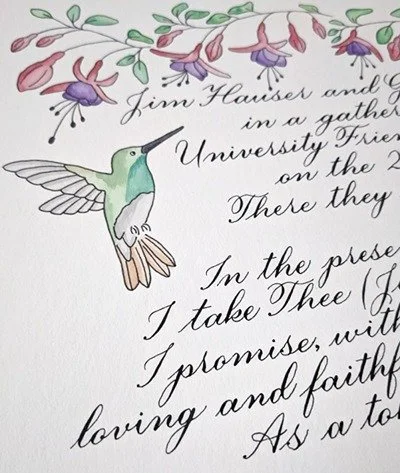 Jim Hauser and G
in a gather
University Frien
on the 2
There they
In the prese
I take Thee (J
I promise, with
loving and faithf
As a to